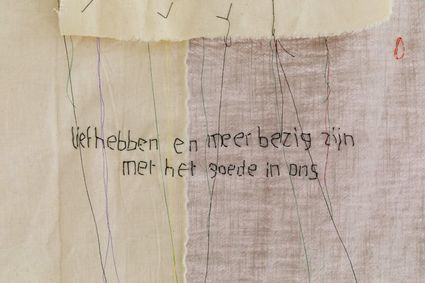 liefhebben en meer bezig zijn
met het goede in ons